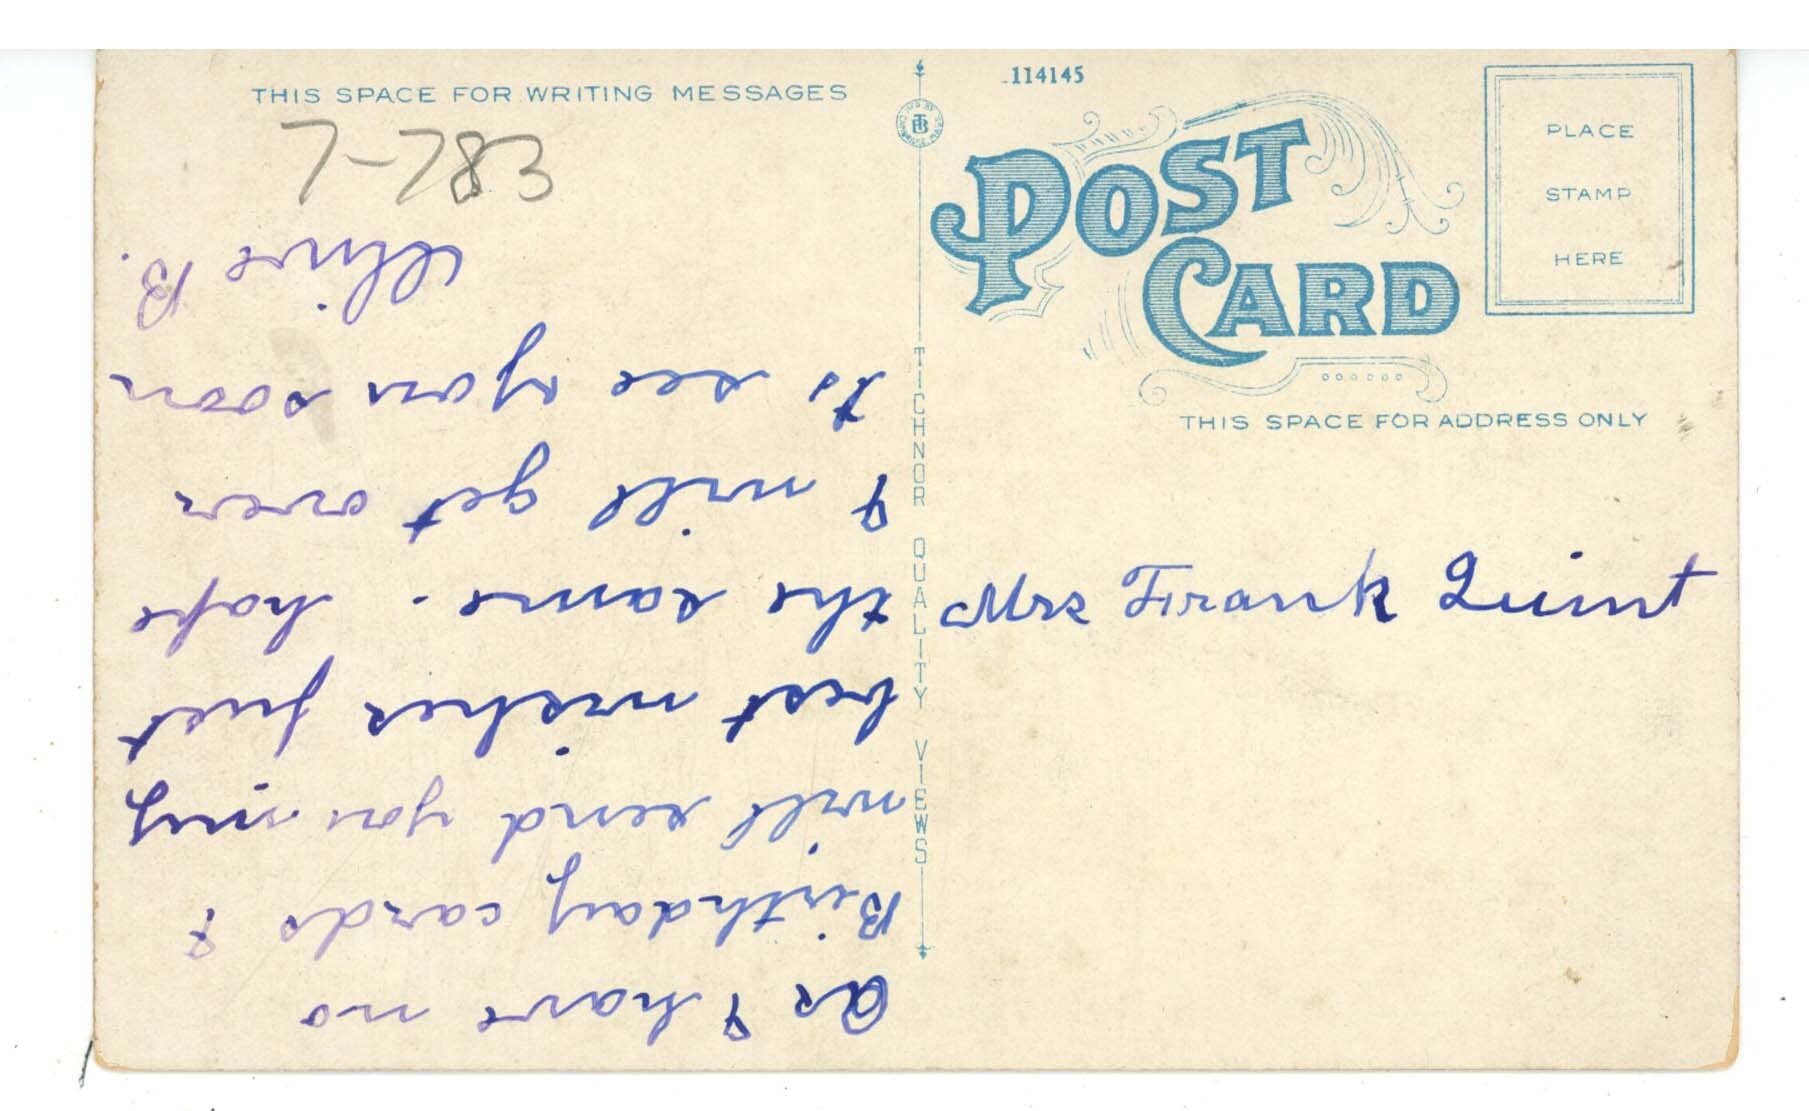 THIS SPACE FOR WRITING MESSAGES
7-783
As I have no
Birthday cards I
will send you my
best wishes just
the same. hope
I will get over
to see you soon
Olive B.
TICHNOR QUALITY VIEWS
114145
POST
CARD
PLACE
STAMP
HERE
THIS SPACE FOR ADDRESS ONLY
Mrs Frank Quint